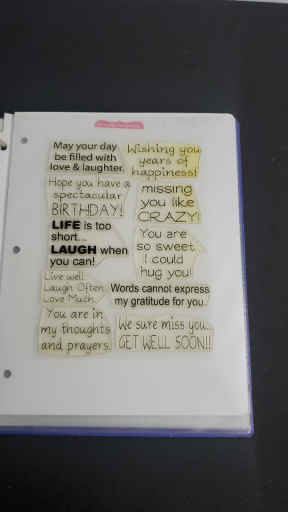 May your day
be filled with
love & laughter.
Hope you have a
spectacular
BIRTHDAY!
LIFE is too
short...
LAUGH when
you can!
Live well.
Laugh Often.
Love Much.
You are in
my thoughts
and prayers.
Wishing you
years of
happiness!
missing
you like
CRAZY!
You are
so sweet
I could
hug you!
Words cannot express
my gratitude for you.
We sure miss you...
GET WELL SOON!!